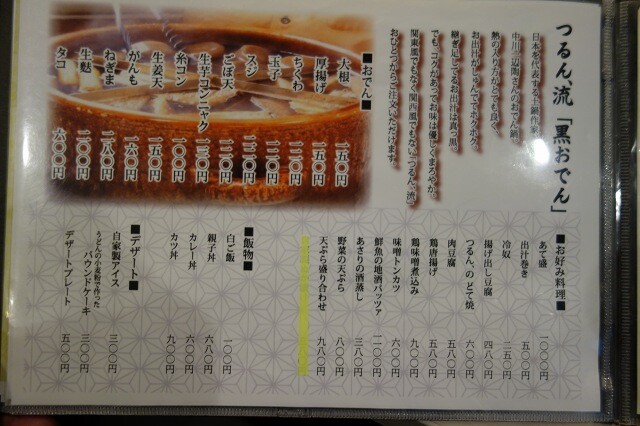 つるん、流「黒おでん」
日本を代表する土鍋作家
中川一辺陶さんのおでん鍋。
熱の入り方がとても良く、
お出汁がじゅんででホクホク。
継ぎ足してるお出汁は真っ黒。
でも、コクがあってお味は優しくまろやか。
関東風でもなく関西風でもない「つるん、流」
おひとつからご注文いただけます。
■おでん■
大根 一五〇円
厚揚げ 一五〇円
ちくわ 一二〇円
玉子 一二〇円
スジ 一三〇円
ごぼ天 一二〇円
生芋コンニャク 一三〇円
糸コン 一〇〇円
生姜天 一五〇円
がんも 一六〇円
ねぎま 一八〇円
生麩 二〇〇円
タコ 六〇〇円
■お好み料理■
あて盛 一〇〇〇円
出汁巻き 五〇〇円
冷奴 二五〇円
揚げ出し豆腐 四八〇円
つるん、のどて焼 六〇〇円
肉豆腐 五八〇円
鶏唐揚げ 五八〇円
鶏味噌煮込み 五八〇円
味噌トンカツ 九〇〇円
鮮魚の地酒パッツァ 二一〇〇円
あさりの酒蒸し 六〇〇円
野菜の天ぷら 八〇〇円
天ぷら盛り合わせ 九八〇円
■飯物■
白ご飯 一〇〇円
親子丼 六八〇円
カレー丼 六〇〇円
カツ丼 九〇〇円
■デザート■
自家製アイス 三〇〇円
うどんの小麦粉で作った
パウンドケーキ 三〇〇円
デザートプレート 五〇〇円